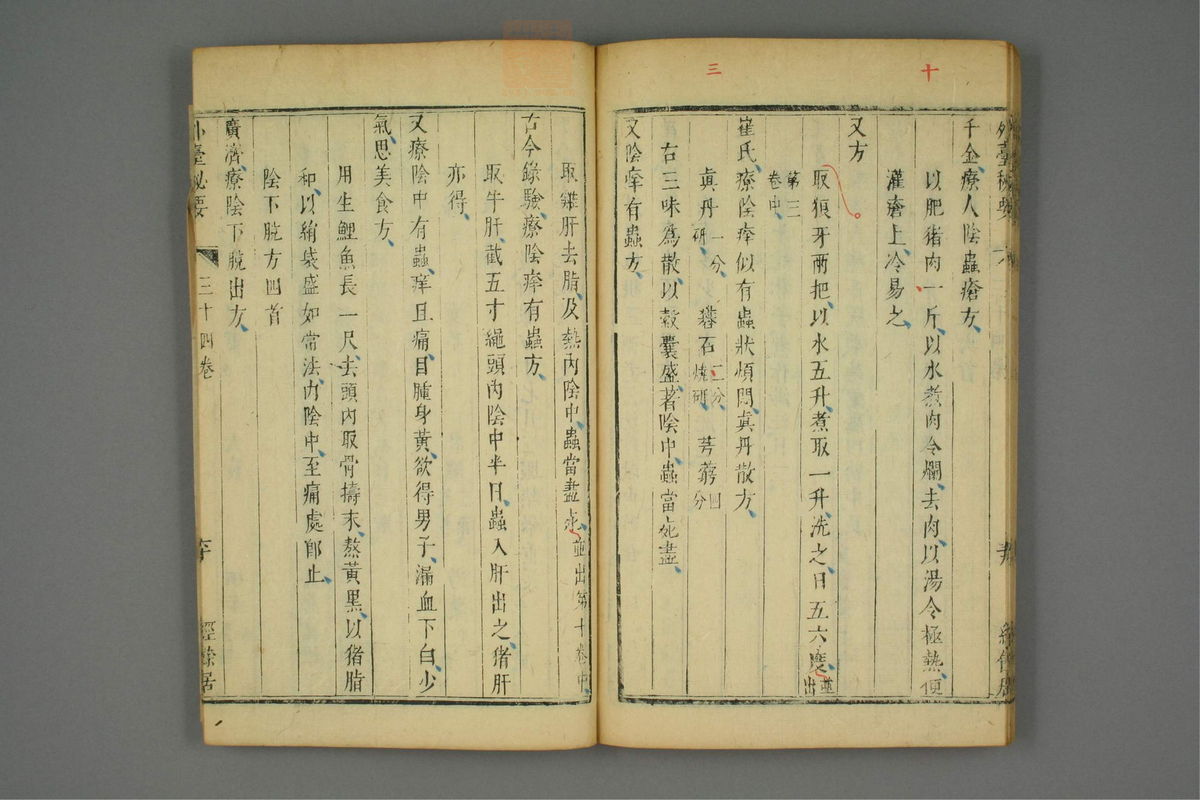 十
三
千金療人陰蟲瘡方
以肥猪肉一斤以水煮肉令爛去肉以湯令極熱便
灌瘡上冷易之
又方
取狼牙兩把以水五升煮取一升洗之日五六度並出
第三卷中
崔氏療陰痒似有蟲狀煩悶真丹散方
真丹一分研 礬石二分燒研 芎藭四分
右三味為散以縠囊盛著陰中蟲當死盡
又陰痒有蟲方
取雞肝去脂及熱內陰中蟲當盡死並出第十卷中
古今錄驗療陰痒有蟲方
取牛肝截五寸繩頭內陰中半日蟲入肝出之猪肝
亦得
又療陰中有蟲痒且痛目腫身黃欲得男子漏血下白少
氣思美食方
用生鯉魚長一尺去頭內取骨擣末熬黃黑以猪脂
和以絹袋盛如常法內陰中至痛處即止
陰下脫方四首
廣濟療陰下脫出方
外臺秘要 三十四卷 經餘居